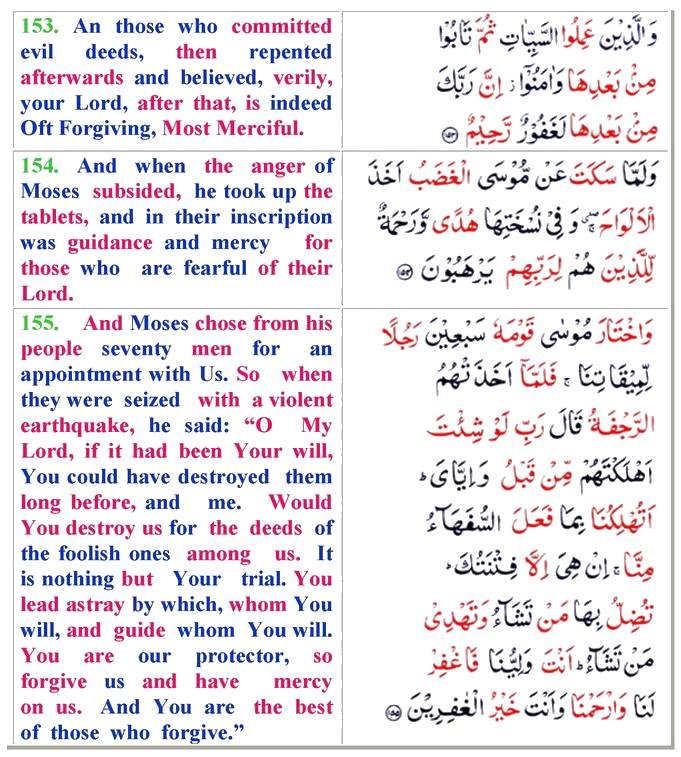 153. An those who committed
evil deeds, then repented
afterwards and believed, verily,
your Lord, after that, is indeed
Oft Forgiving, Most Merciful.
وَالَّذِيْنَ عَمِلُوا السَّيِّاٰتِ ثُمَّ تَابُوْا
مِنْۢ بَعْدِهَا وَاٰمَنُوْۤا ؗ اِنَّ رَبَّكَ
مِنْۢ بَعْدِهَا لَغَفُوْرٌ رَّحِيْمٌ ﴿۱۵۳﴾
154. And when the anger of
Moses subsided, he took up the
tablets, and in their inscription
was guidance and mercy for
those who are fearful of their
Lord.
وَلَمَّا سَكَتَ عَنْ مُّوْسَى الْغَضَبُ اَخَذَ
الْاَلْوَاحَ ۖۚ وَ فِىْ نُسْخَتِهَا هُدًى وَّرَحْمَةٌ
لِّلَّذِيْنَ هُمْ لِرَبِّهِمْ يَرْهَبُوْنَ ﴿۱۵۴﴾
155. And Moses chose from his
people seventy men for an
appointment with Us. So when
they were seized with a violent
earthquake, he said: “O My
Lord, if it had been Your will,
You could have destroyed them
long before, and me. Would
You destroy us for the deeds of
the foolish ones among us. It
is nothing but Your trial. You
lead astray by which, whom You
will, and guide whom You will.
You are our protector, so
forgive us and have mercy
on us. And You are the best
of those who forgive.”
وَاخْتَارَ مُوْسٰى قَوْمَهٗ سَبْعِيْنَ رَجُلًا
لِّمِيْقَاتِنَا ۚ فَلَمَّاۤ اَخَذَتْهُمُ
الرَّجْفَةُ قَالَ رَبِّ لَوْ شِئْتَ
اَهْلَكْتَهُمْ مِّنْ قَبْلُ وَاِيَّاىَ ؕ
اَتُهْلِكُنَا بِمَا فَعَلَ السُّفَهَآءُ
مِنَّا ۚ اِنْ هِىَ اِلَّا فِتْنَتُكَ ؕ
تُضِلُّ بِهَا مَنْ تَشَآءُ وَتَهْدِىْ
مَنْ تَشَآءُ ؕ اَنْتَ وَلِيُّنَا فَاغْفِرْ
لَنَا وَارْحَمْنَا وَاَنْتَ خَيْرُ الْغٰفِرِيْنَ ﴿۱۵۵﴾